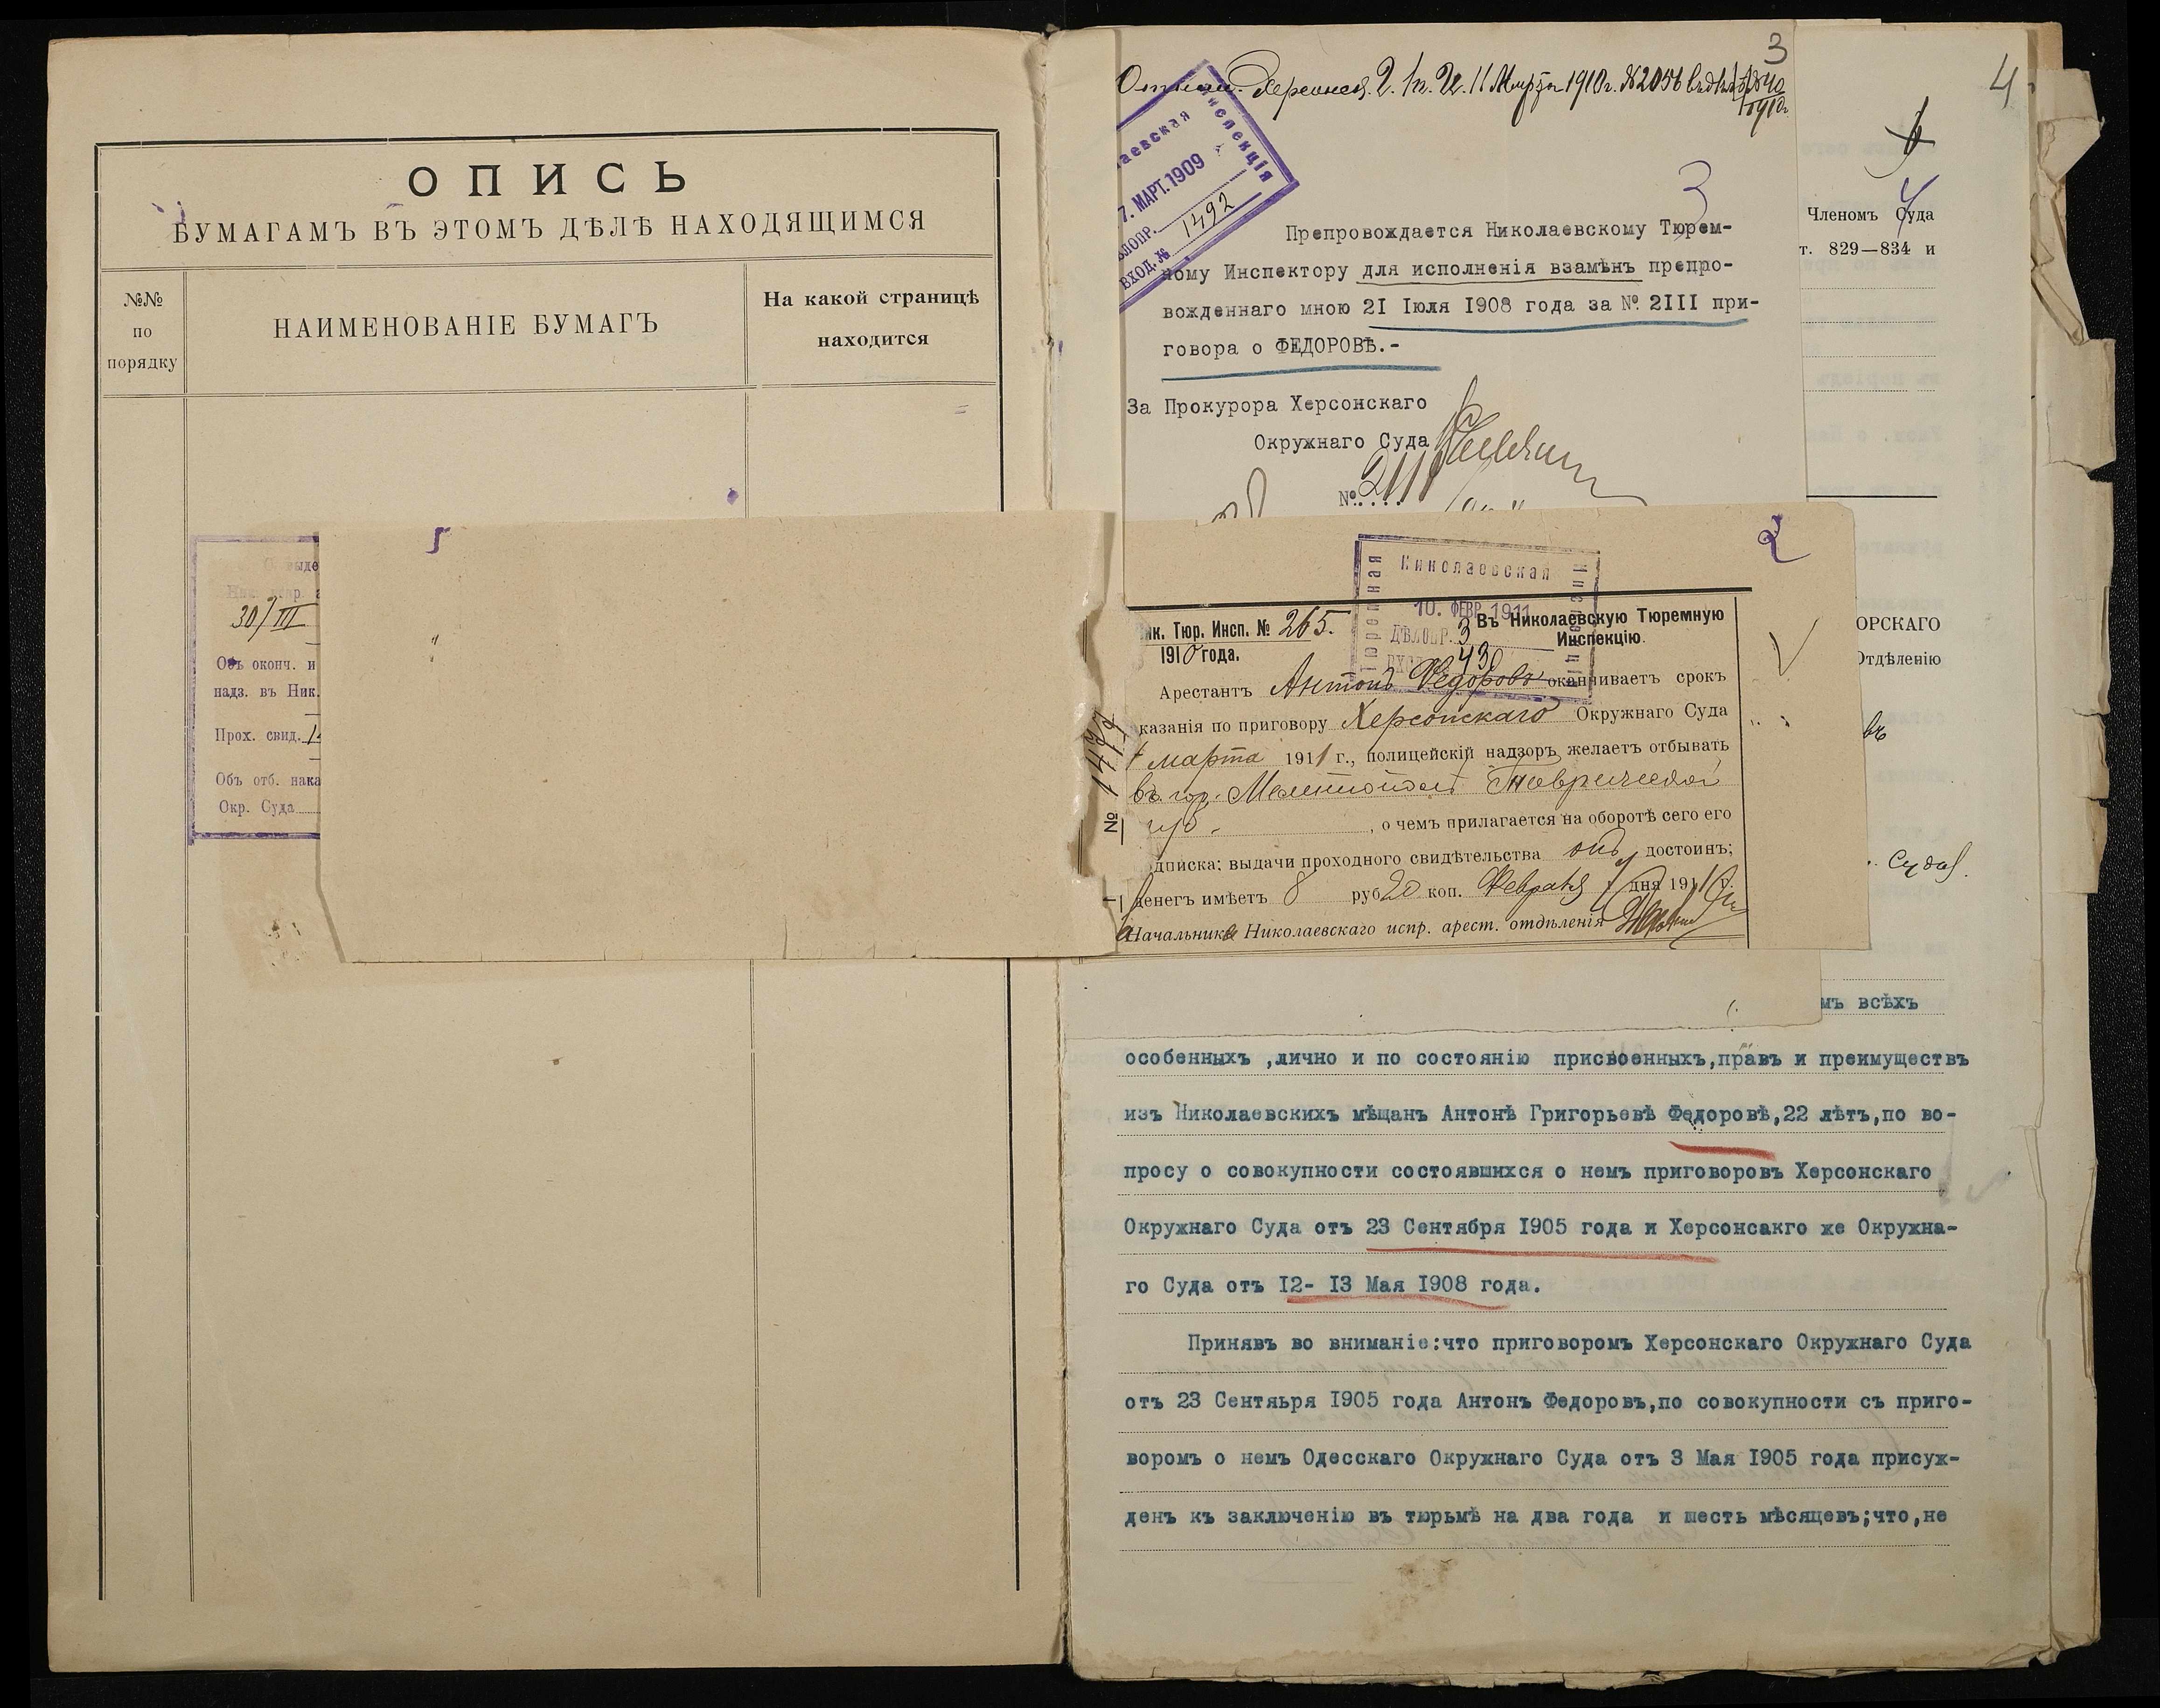 ОПИСЬ
БУМАГАМЪ ВЪ ЭТОМЪ ДѢЛѢ НАХОДЯЩИМСЯ
№№
по
порядку
НАИМЕНОВАНІЕ БУМАГЪ
На какой страницѣ
находится
30/III
Объ оконч. и
надз. въ Ник.
Прох. свид.
Объ отб. нака
Окр. Суда
3
11 Марта 1910 г. № 2056
1910
аевская
инспекція
7. МАРТ. 1909
ѢЛОПР.
ВХОД. № 1492
3
Препровождается Николаевскому Тюрем-
ному Инспектору для исполненія взамѣнъ препро-
вожденнаго мною 21 Іюля 1908 года за № 2III при-
говора о ФЕДОРОВѢ.-
За Прокурора Херсонскаго
Окружнаго Суда
№ 2111
4
4
Членомъ Суда
т. 829—834 и
ОРСКАГО
Отдѣленію
въ
Суда
2
Николаевская
Тюремная
10. ФЕВР. 1911
ДѢЛОПР. 3
430
ик. Тюр. Инсп. № 265.
1910 года.
Въ Николаевскую Тюремную
Инспекцію.
Арестантъ Антонъ Федоровъ оканчиваетъ срокъ
казанія по приговору Херсонскаго Окружнаго Суда
марта 1911 г., полицейскій надзоръ желаетъ отбывать
въ гор. Мелитополѣ Таврической
губ. , о чемъ прилагается на оборотѣ сего его
дписка; выдачи проходного свидѣтельства онъ достоинъ;
денегъ имѣетъ 8 руб 20 коп. Февраля дня 1911 г.
Начальника Николаевскаго испр. арест. отдѣленія
№ 1477
мъ всѣхъ
особенныхъ ,лично и по состоянію присвоенныхъ,правъ и преимуществъ
изъ Николаевскихъ мѣщанъ Антонѣ Григорьевѣ Федоровѣ,22 лѣтъ,по во-
просу о совокупности состоявшихся о немъ приговоровъ Херсонскаго
Окружнаго Суда отъ 23 Сентября I905 года и Херсонсакго же Окружна-
го Суда отъ I2- I3 Мая I908 года.
Принявъ во вниманіе:что приговоромъ Херсонскаго Окружнаго Суда
отъ 23 Сентяьря I905 года Антонъ Федоровъ,по совокупности съ приго-
воромъ о немъ Одесскаго Окружнаго Суда отъ 3 Мая I905 года присуж-
денъ къ заключенію въ тюрьмѣ на два года и шесть мѣсяцевъ;что,не